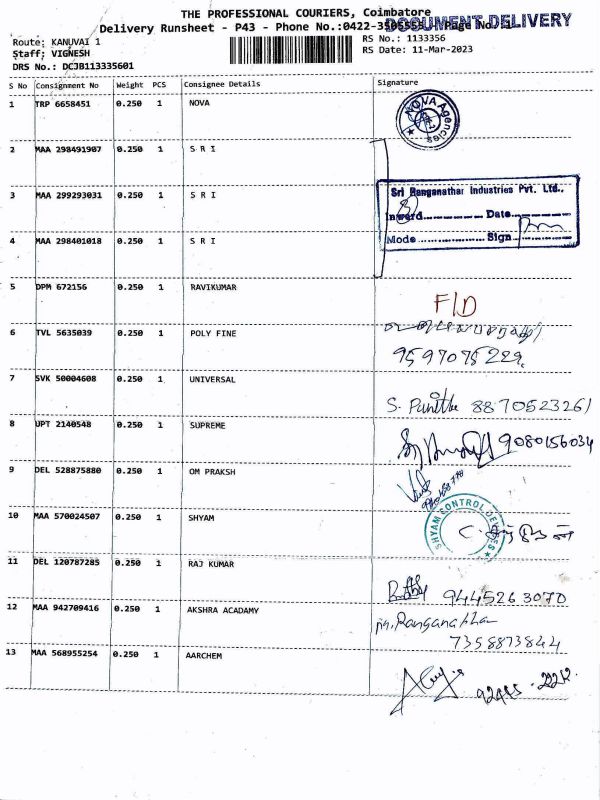 THE PROFESSIONAL COURIERS, Coimbatore
Delivery Runsheet - P43 - Phone No.:0422-3505555 Page No.: 1
DOCUMENT DELIVERY
Route: KANUVAI 1
RS No.: 1133356
Staff: VIGNESH
RS Date: 11-Mar-2023
DRS No.: DCJB113335601
S No Consignment No Weight PCS Consignee Details Signature
1 TRP 6658451 0.250 1 NOVA
NOVA Agencies
2 MAA 298491907 0.250 1 S R I
3 MAA 299293031 0.250 1 S R I
Sri Ranganathar Industries Pvt. Ltd.,
Inward Date
4 MAA 298401018 0.250 1 S R I
Mode Sign
5 DPM 672156 0.250 1 RAVIKUMAR
F/D
6 TVL 5635039 0.250 1 POLY FINE
9597075229
7 SVK 50004608 0.250 1 UNIVERSAL
S. Punitha 8870523261
8 UPT 2140548 0.250 1 SUPREME
9080156034
9 DEL 528875880 0.250 1 OM PRAKSH
10 MAA 570024507 0.250 1 SHYAM
SHYAM CONTROL DEVICES
11 DEL 120787285 0.250 1 RAJ KUMAR
9445263070
12 MAA 942709416 0.250 1 AKSHRA ACADAMY
M. Ranganathan
7358873844
13 MAA 568955254 0.250 1 AARCHEM